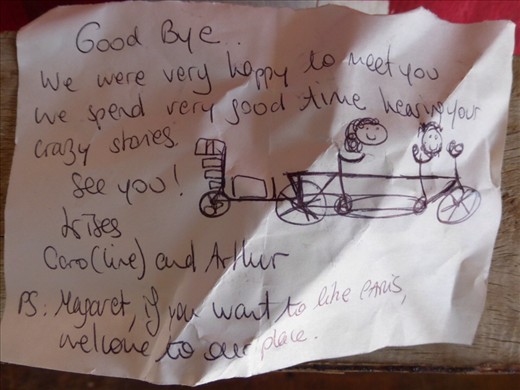 Good Bye.
We were very happy to meet you
we spend very good time hearing your
crazy stories.
See you!
bises
Caro(line) and Arthur
PS: Magaret, if you want to like PARIS,
welcome to our place.